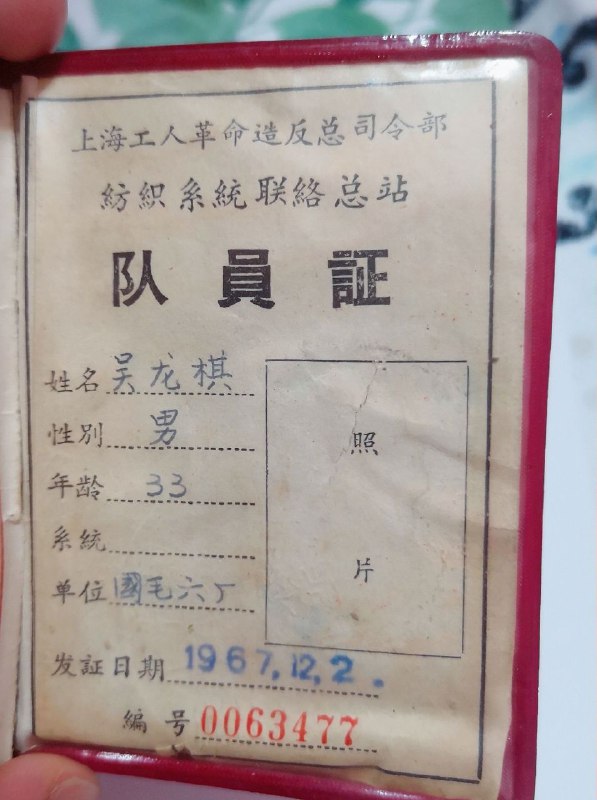 上海工人革命造反总司令部
紡織系統联絡总站
队員証
姓名 吴龙棋
性别 男
年龄 33
系統
单位 國毛六厂
照片
发証日期 1967.12.2.
編号 0063477